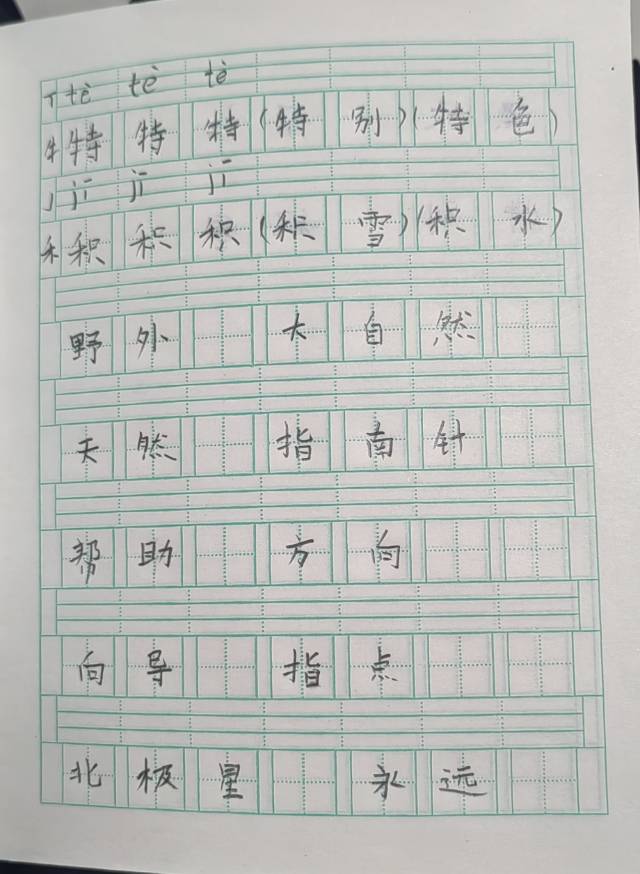 tè tè tè
牜特特特(特别)(特色)
jī jī jī
禾积积积(积雪)(积水)
野外 大自然
天然 指南针
帮助 方向
向导 指点
北极星 永远